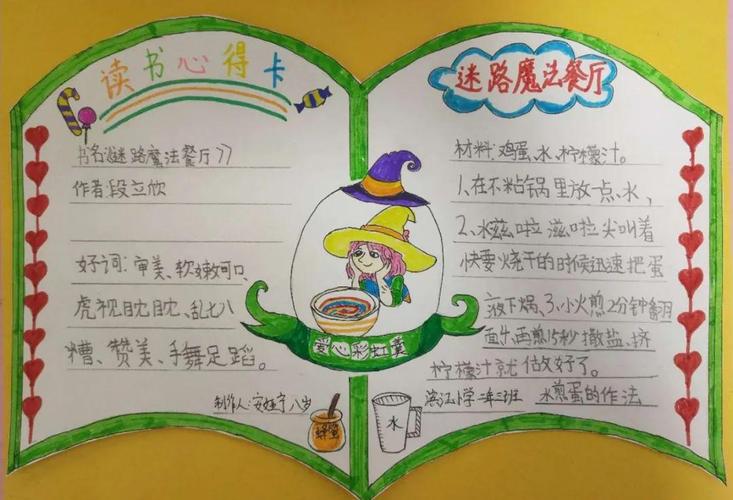 读书心得卡
书名《迷路魔法餐厅》
作者:段立欣
好词:审美、软嫩可口、
虎视眈眈、乱七八
糟、赞美、手舞足蹈。
制作人:安
八岁
爱心彩虹
蜂蜜
水
迷路魔法餐厅
材料:鸡蛋、水、柠檬汁。
1、在不粘锅里放一点水、
2、水滋啦滋啦尖叫着
快要烧干的时候迅速把蛋
液下锅、3、小火煎2分钟翻
面、再煎15秒撒盐、挤
柠檬汁就做好了。
滨江小学二年三班
水煎蛋的作法